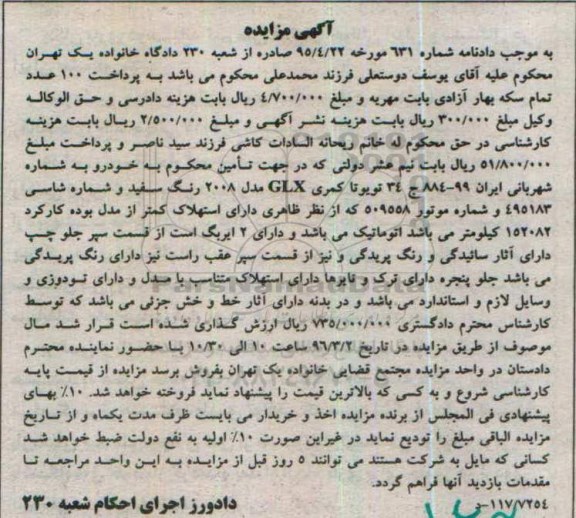 آگهی مزایده
به موجب دادنامه شماره ۶۳۱ مورخه ۹۵/۴/۲۲ صادره از شعبه ۲۳۰ دادگاه خانواده یک تهران
محکوم علیه آقای یوسف دوستعلی فرزند محمدعلی محکوم می باشد به پرداخت ۱۰۰ عدد
تمام سکه بهار آزادی بابت مهریه و مبلغ ۴/۷۰۰/۰۰۰ ریال بابت هزینه دادرسی و حق الوکاله
وکیل مبلغ ۳۰۰/۰۰۰ ریال بابت هزینه نشر آگهی و مبلغ ۲/۵۰۰/۰۰۰ ریال بابت هزینه
کارشناسی در حق محکوم له خانم ریحانه السادات کاشی فرزند سید ناصر و پرداخت مبلغ
۵۱/۸۰۰/۰۰۰ ریال بابت نیم عشر دولتی که در جهت تأمین محکوم به خودرو به شماره
شهربانی ایران ۹۹-۸۸۴ ج ۳۴ تویوتا کمری GLX مدل ۲۰۰۸ رنگ سفید و شماره شاسی
۴۹۵۱۸۳ و شماره موتور ۵۰۹۵۵۸ که از نظر ظاهری دارای استهلاک کمتر از مدل بوده کارکرد
۱۵۲۰۸۲ کیلومتر می باشد اتوماتیک می باشد و دارای ۲ ایربگ است از قسمت سپر جلو چپ
دارای آثار سائیدگی و رنگ پریدگی و نیز از قسمت سپر عقب راست نیز دارای رنگ پریدگی
می باشد جلو پنجره دارای ترک و تایرها دارای استهلاک متناسب با مدل و دارای تودوزی و
وسایل لازم و استاندارد می باشد و در بدنه دارای آثار خط و خش جزئی می باشد که توسط
کارشناس محترم دادگستری ۷۳۵/۰۰۰/۰۰۰ ریال ارزش گذاری شده است قرار شد مال
موصوف از طریق مزایده در تاریخ ۹۶/۳/۲ ساعت ۱۰ الی ۱۰/۳۰ با حضور نماینده محترم
دادستان در واحد مزایده مجتمع قضایی خانواده یک تهران بفروش برسد مزایده از قیمت پایه
کارشناسی شروع و به کسی که بالاترین قیمت را پیشنهاد نماید فروخته خواهد شد. ۱۰٪ بهای
پیشنهادی فی المجلس از برنده مزایده اخذ و خریدار می بایست ظرف مدت یکماه و از تاریخ
مزایده الباقی مبلغ را تودیع نماید در غیراین صورت ۱۰٪ اولیه به نفع دولت ضبط خواهد شد
کسانی که مایل به شرکت هستند می توانند ۵ روز قبل از مزایده به این واحد مراجعه تا
مقدمات بازدید آنها فراهم گردد.
دادورز اجرای احکام شعبه ۲۳۰
۱۱۷/۷۲۵۴-د
ParsNamadData